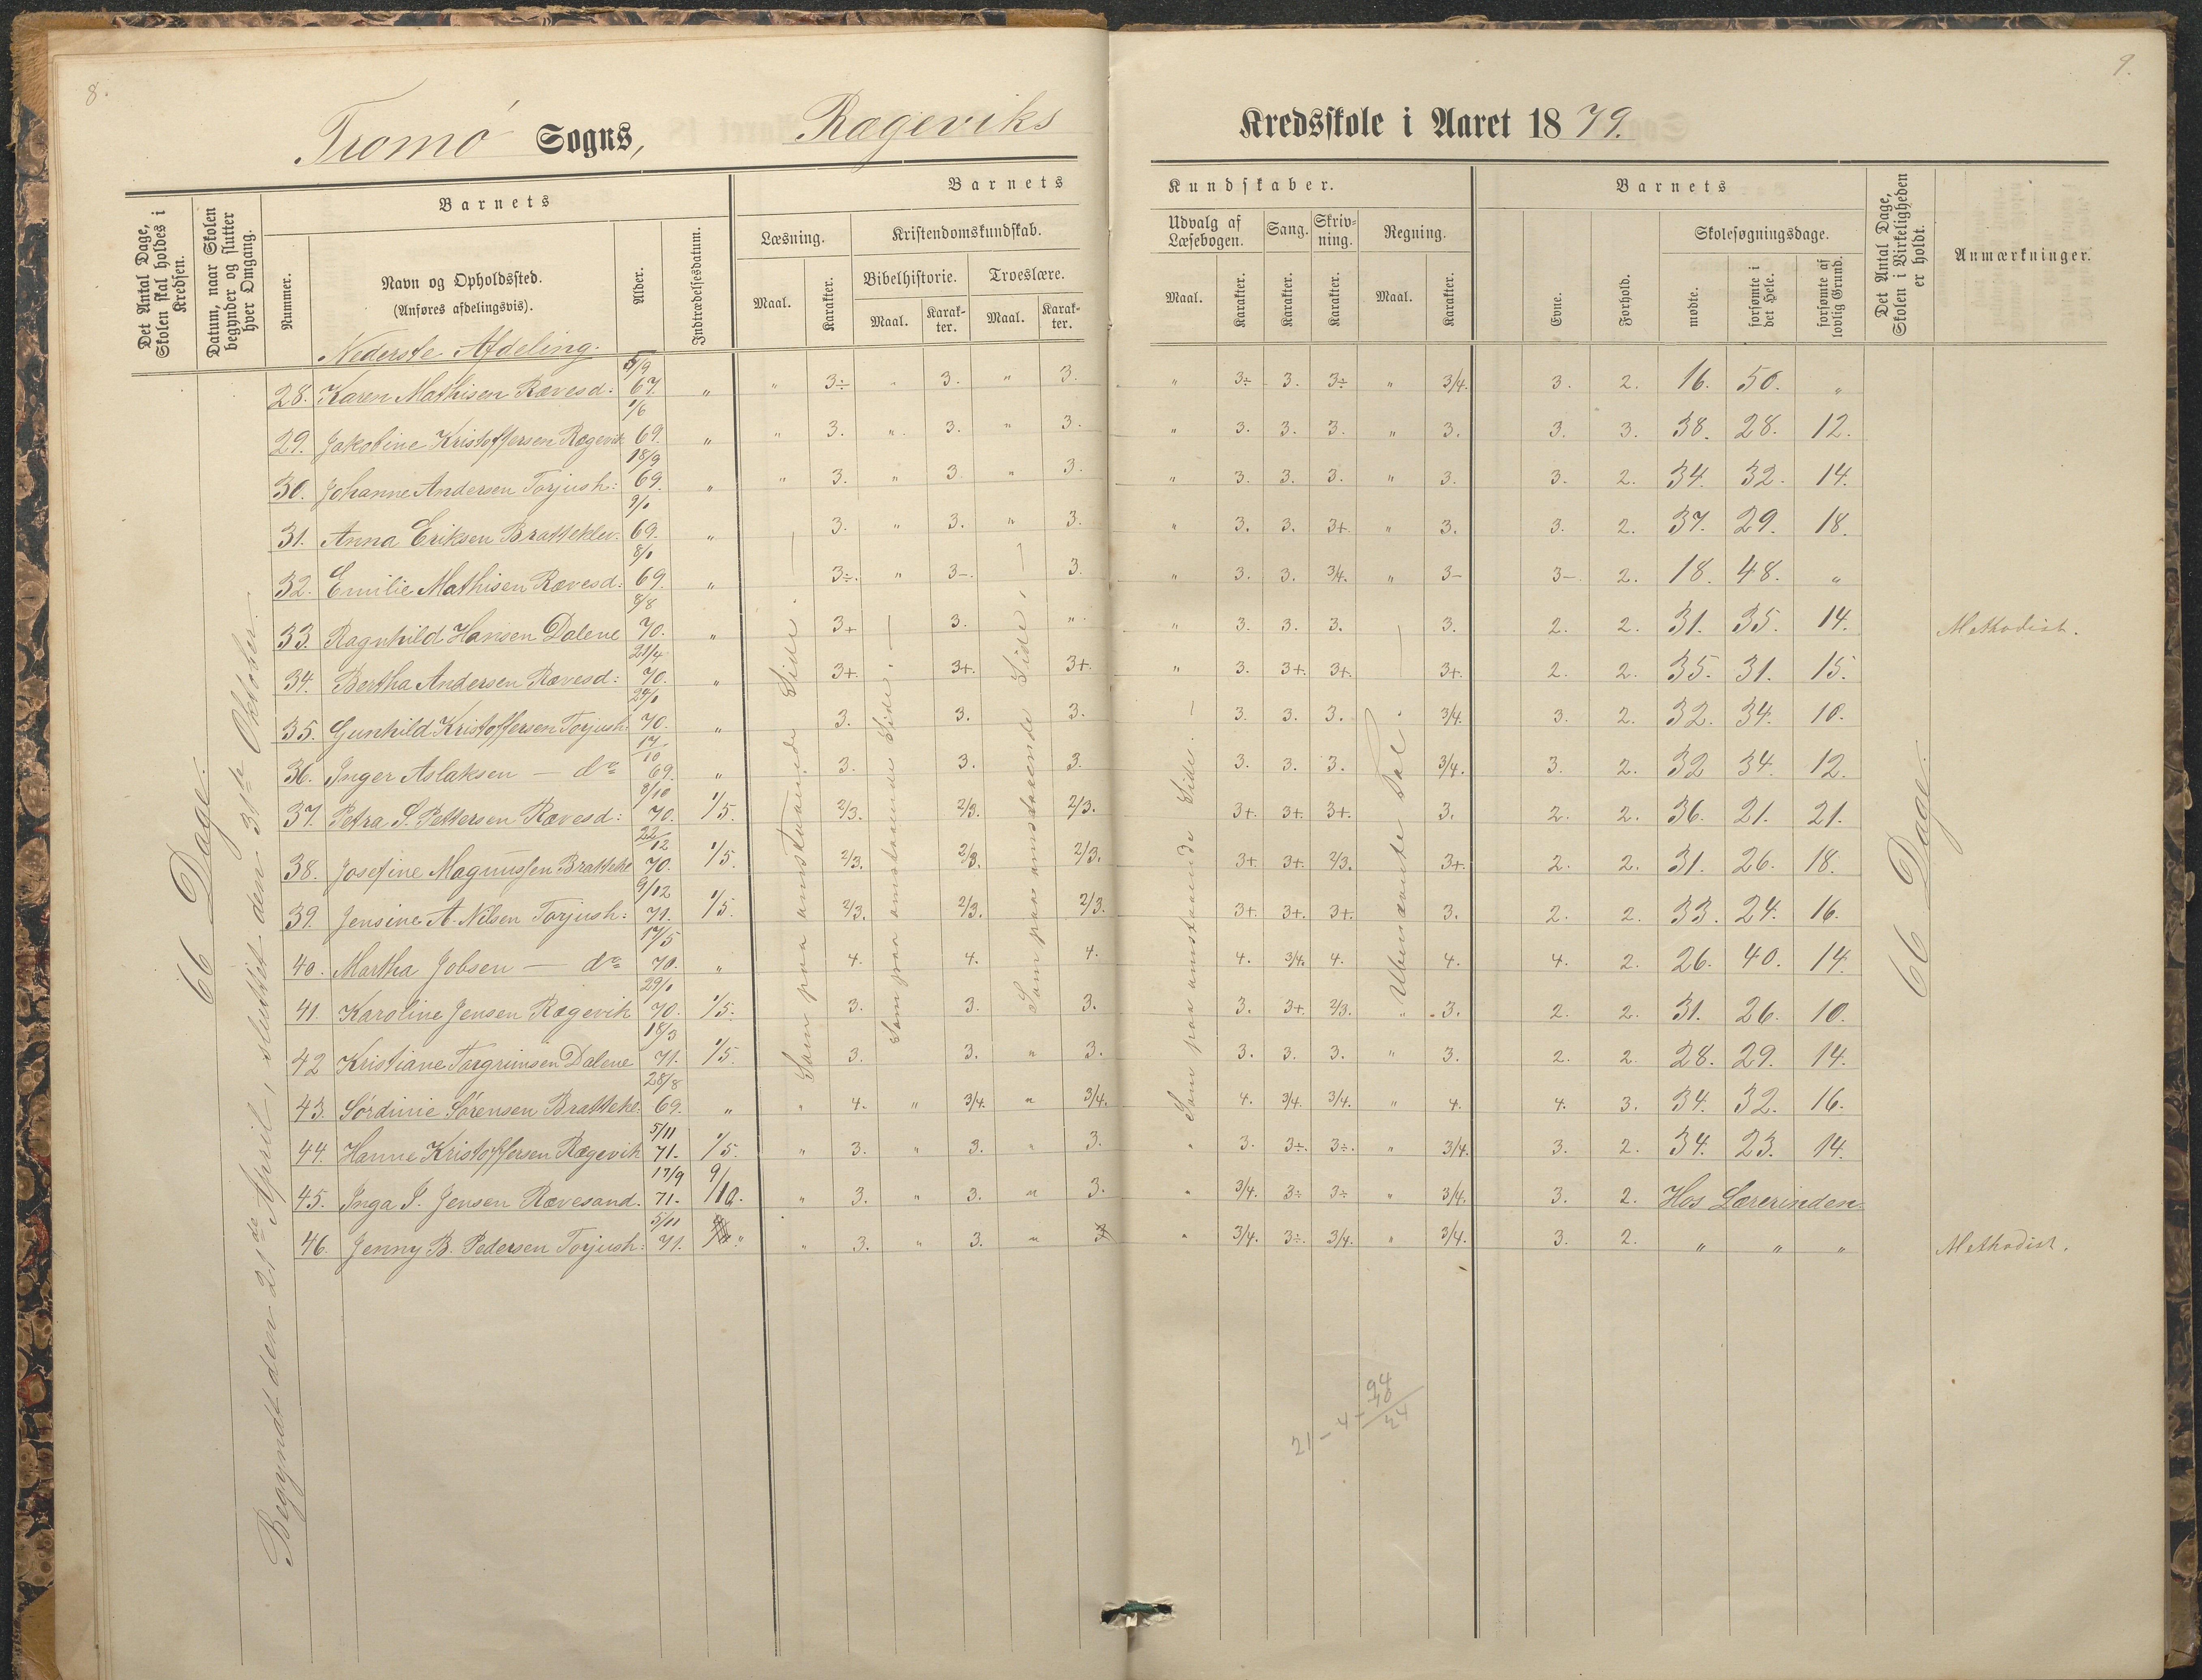 8.
9.
Tromø Sogns, Rægeviks Kredsskole i Aaret 1879.
Det Antal Dage, Skolen skal holdes i Kredsen.
Datum, naar Skolen begynder og slutter hver Omgang.
Barnets
Nummer.
Navn og Opholdssted.
(Anføres afdelingsvis).
Alder.
Indtrædelsesdatum.
Barnets Kundskaber.
Læsning.
Maal.
Karakter.
Kristendomskundskab.
Bibelhistorie.
Maal.
Karakter.
Troeslære.
Maal.
Karakter.
Udvalg af Læsebogen.
Maal.
Karakter.
Sang.
Karakter.
Skrivning.
Karakter.
Regning.
Maal.
Karakter.
Barnets
Evne.
Forhold.
Skolesøgningsdage.
mødte.
forsømte i det Hele.
forsømte af lovlig Grund.
Det Antal Dage, Skolen i Virkeligheden er holdt.
Anmærkninger.
Nederste Afdeling.
28. Karen Mathisen Rævesd: 5/9 67. " " 3÷ " 3. " 3. " 3÷ 3. 3÷ " 3/4. 3. 2. 16. 50. "
29. Jakobine Kristoffersen Rægevik 1/6 69. " " 3. " 3. " 3. " 3. 3. 3. " 3. 3. 3. 38. 28. 12.
30. Johanne Andersen Torjush: 18/9 69. " " 3. " 3 " 3. " 3. 3. 3. " 3. 3. 2. 34. 32. 14.
31. Anna Eriksen Bratteklev. 9/1 69. " 3. " 3. " 3. " 3. 3. 3+ " 3. 3. 2. 37. 29. 18.
32. Emilie Mathisen Rævesd: 8/1 69. " 3÷. " 3-. 3. " 3. 3. 3/4. " 3- 3-. 2. 18. 48. "
33. Ragnhild Hansen Dalene 8/8 70. " 3+ 3. " " 3. 3. 3. 3. 2. 2. 31. 35. 14. Methodist.
34. Bertha Andersen Rævesd: 21/4 70. " 3+. 3+. 3+. " 3. 3+. 3+. 3+. 2. 2. 35. 31. 15.
35. Gunhild Kristoffersen Torjush. 24/1 70. " 3. 3. 3. 3. 3. 3. 3/4. 3. 2. 32. 34. 10.
36. Inger Aslaksen — do 17/10 69. " 3. 3. 3. 3. 3. 3. 3/4. 3. 2. 32 34. 12.
37. Petra S. Pettersen Rævesd: 8/10 70. 1/5. 2/3. 2/3. 2/3. 3+. 3+. 3+. 3. 2. 2. 36. 21. 21.
38. Josefine Magnussen Brattekl 22/12 70. 1/5. 2/3. 2/3. 2/3. 3+. 3+. 2/3. 3+. 2. 2. 31. 26. 18.
39. Jensine A. Nilsen Torjush: 9/12 71. 1/5. 2/3. 2/3. 2/3. 3+. 3+. 3+. 3. 2. 2. 33. 24. 16.
40. Martha Jobsen — do 17/5 70. " 4. 4. 4. 4. 3/4. 4. 4. 4. 2. 26. 40. 14.
41. Karoline Jensen Rægevik 29/1 70. 1/5. 3. 3. 3. 3. 3+. 2/3. " 3. 2. 2. 31. 26. 10.
42 Kristiane Torgrimsen Dalene 18/3 71. 1/5. 3. 3. " 3. 3. 3. 3. " 3. 2. 2. 28. 29. 14.
43. Sørdinie Sørensen Brattekl. 28/8 69. " " 4. " 3/4. " 3/4. 4. 3/4. 3/4. " 4. 4. 3. 34. 32. 16.
44. Hanne Kristoffersen Rægevik 5/11 71. 1/5. " 3. " 3. " 3. " 3. 3÷. 3÷. " 3/4. 3. 2. 34. 23. 14.
45. Inga J. Jensen Rævesand. 17/9 71. 9/10. " 3. " 3. " 3. " 3/4. 3÷ 3÷ " 3/4. 3. 2. Hos Lærerinden.
46. Jenny B. Pedersen Torjush: 5/11 71. " " 3. " 3. " 3 " 3/4. 3÷. 3/4. " 3/4. 3. 2. " " " Methodist.
66 Dage.
Begyndt den 21de April, sluttet den 31te Oktober.
Som paa omstaaende Side.
Som paa omstaaende Side.
Som paa omstaaende Side.
Som paa omstaaende Side.
Ubenævnte Tal.
66 Dage.
21 - 4 =
94
24